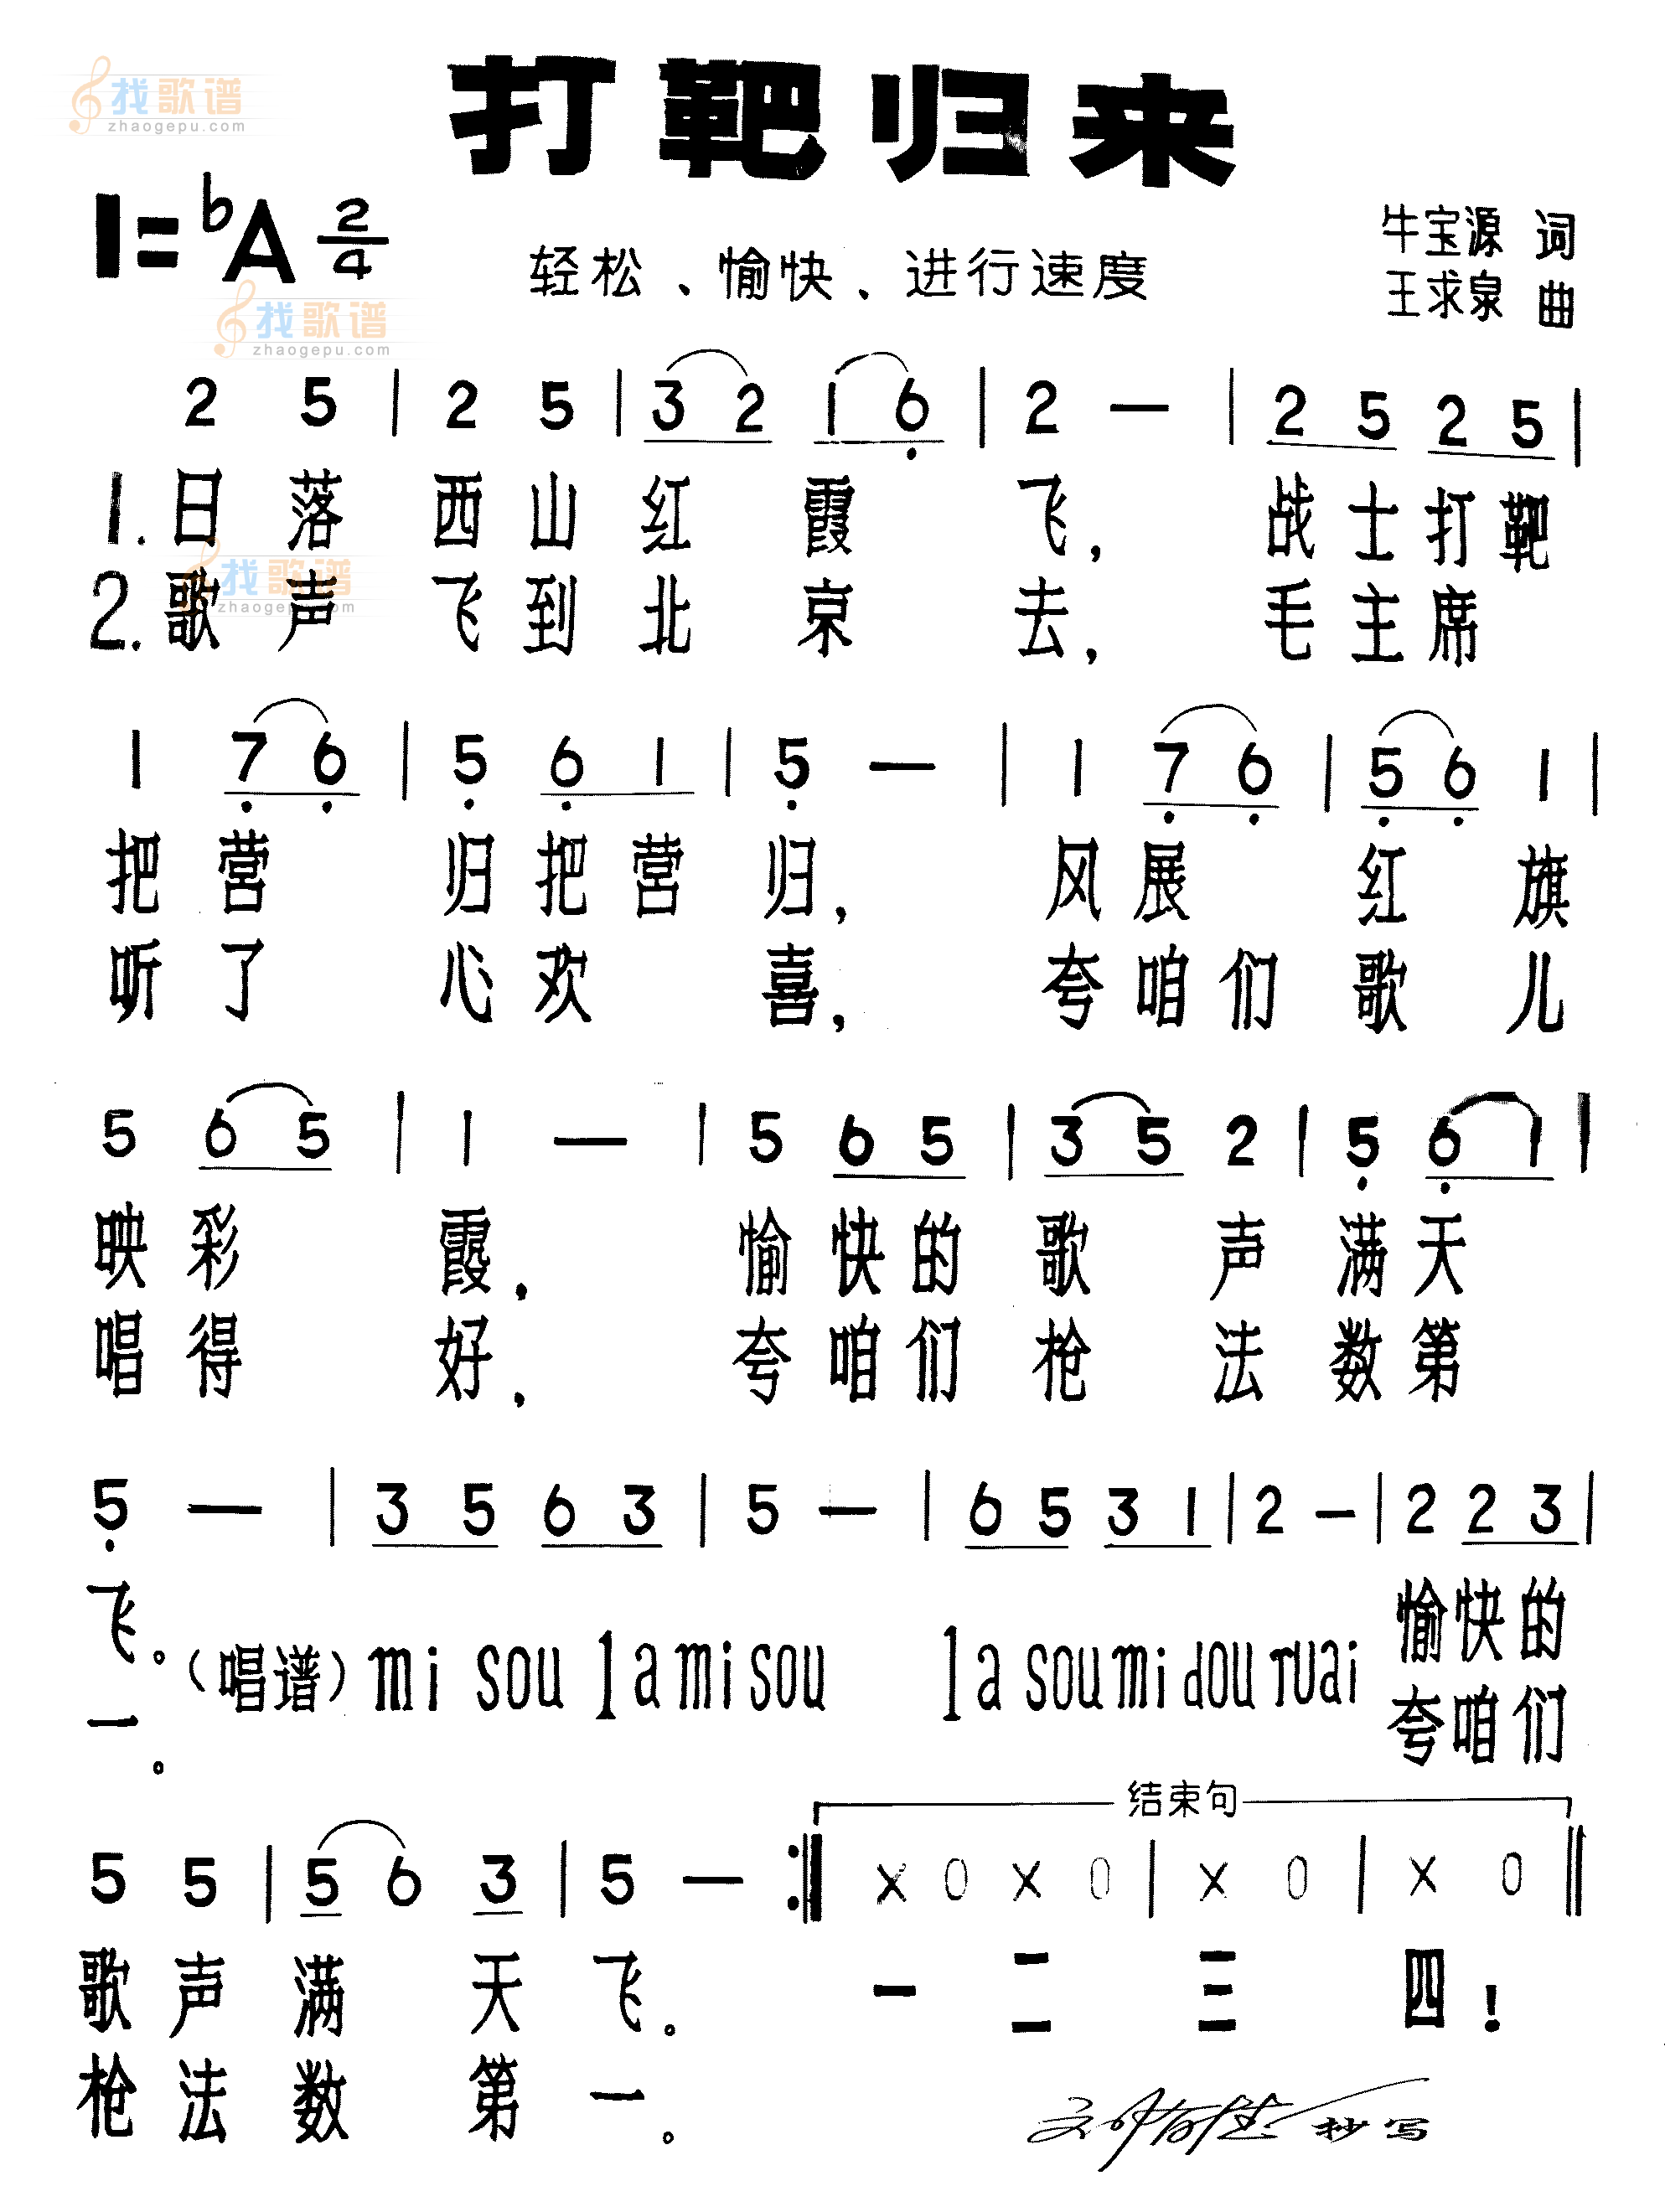 找歌谱
zhaogepu.com
打靶归来
1=♭A 2/4
轻松、愉快、进行速度
牛宝源 词
王求泉 曲
找歌谱
zhaogepu.com
2 5 | 2 5 | 3 2 1 6 | 2 — | 2 5 2 5 |
1.日落西山红霞飞,战士打靶
找歌谱
zhaogepu.com
2.歌声飞到北京去,毛主席
1 7 6 | 5 6 1 | 5 — | 1 7 6 | 5 6 1 |
把营归把营归,风展红旗
听了心欢喜,夸咱们歌儿
5 6 5 | 1 — | 5 6 5 | 3 5 2 | 5 6 1 |
映彩霞,愉快的歌声满天
唱得好,夸咱们枪法数第
5 — | 3 5 6 3 | 5 — | 6 5 3 1 | 2 — | 2 2 3 |
飞。(唱谱) mi sou la mi sou la sou mi dou ruai 愉快的
一。夸咱们
结束句
5 5 | 5 6 3 | 5 — :‖ X 0 X 0 | X 0 | X 0 ‖
歌声满天飞。一二三四!
枪法数第一。
抄写